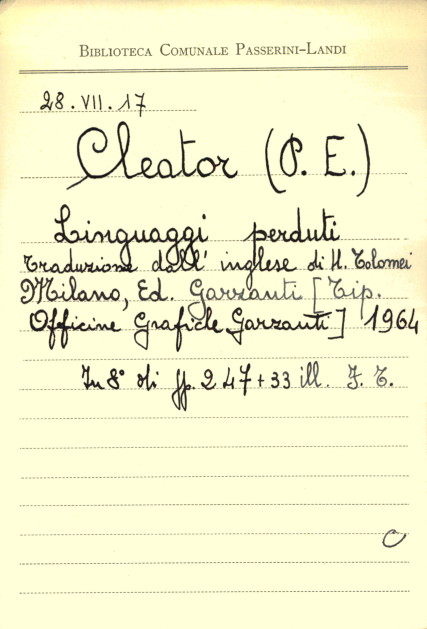 BIBLIOTECA COMUNALE PASSERINI-LANDI
28.VII.17
Cleator (P. E.)
Linguaggi perduti
Traduzione dall' inglese di H. Tolomei
Milano, Ed. Garzanti [Tip.
Officine Grafiche Garzanti] 1964
In 8° di pp. 247+33 ill. F. T.